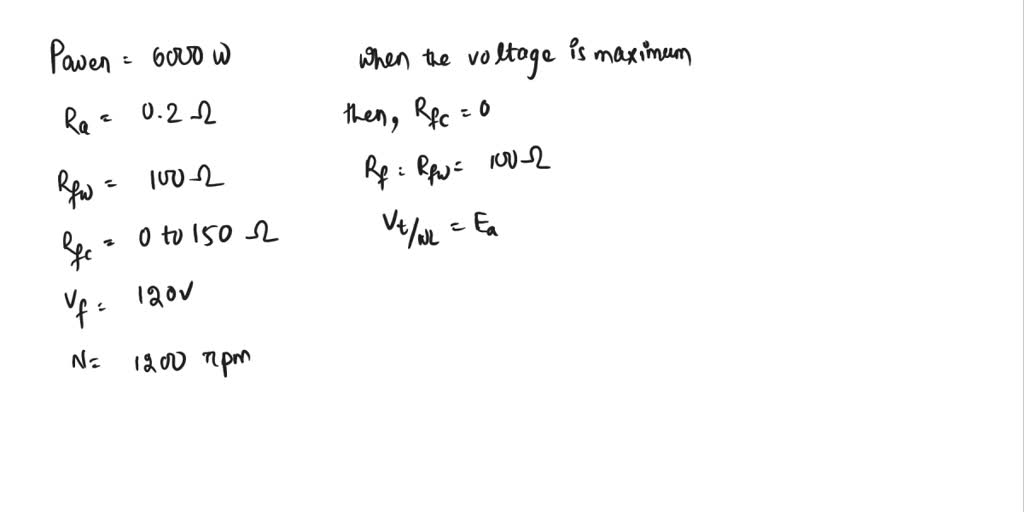 Power = 6000 W
Ra = 0.2 Ω
Rfw = 100 Ω
Rfc = 0 to 150 Ω
Vf = 120V
N = 1200 rpm
when the voltage is maximum
then, Rfc = 0
Rf = Rfw = 100 Ω
Vt/NL = Ea